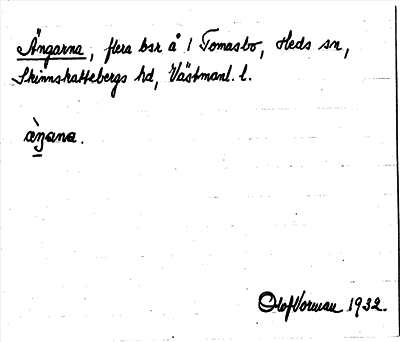 Ängarna, flera bsr å 1 Tomasbo, Heds sn,
Skinnskattebergs hd, Västmanl. l.
àŋana.
Olof Vorman 1932.